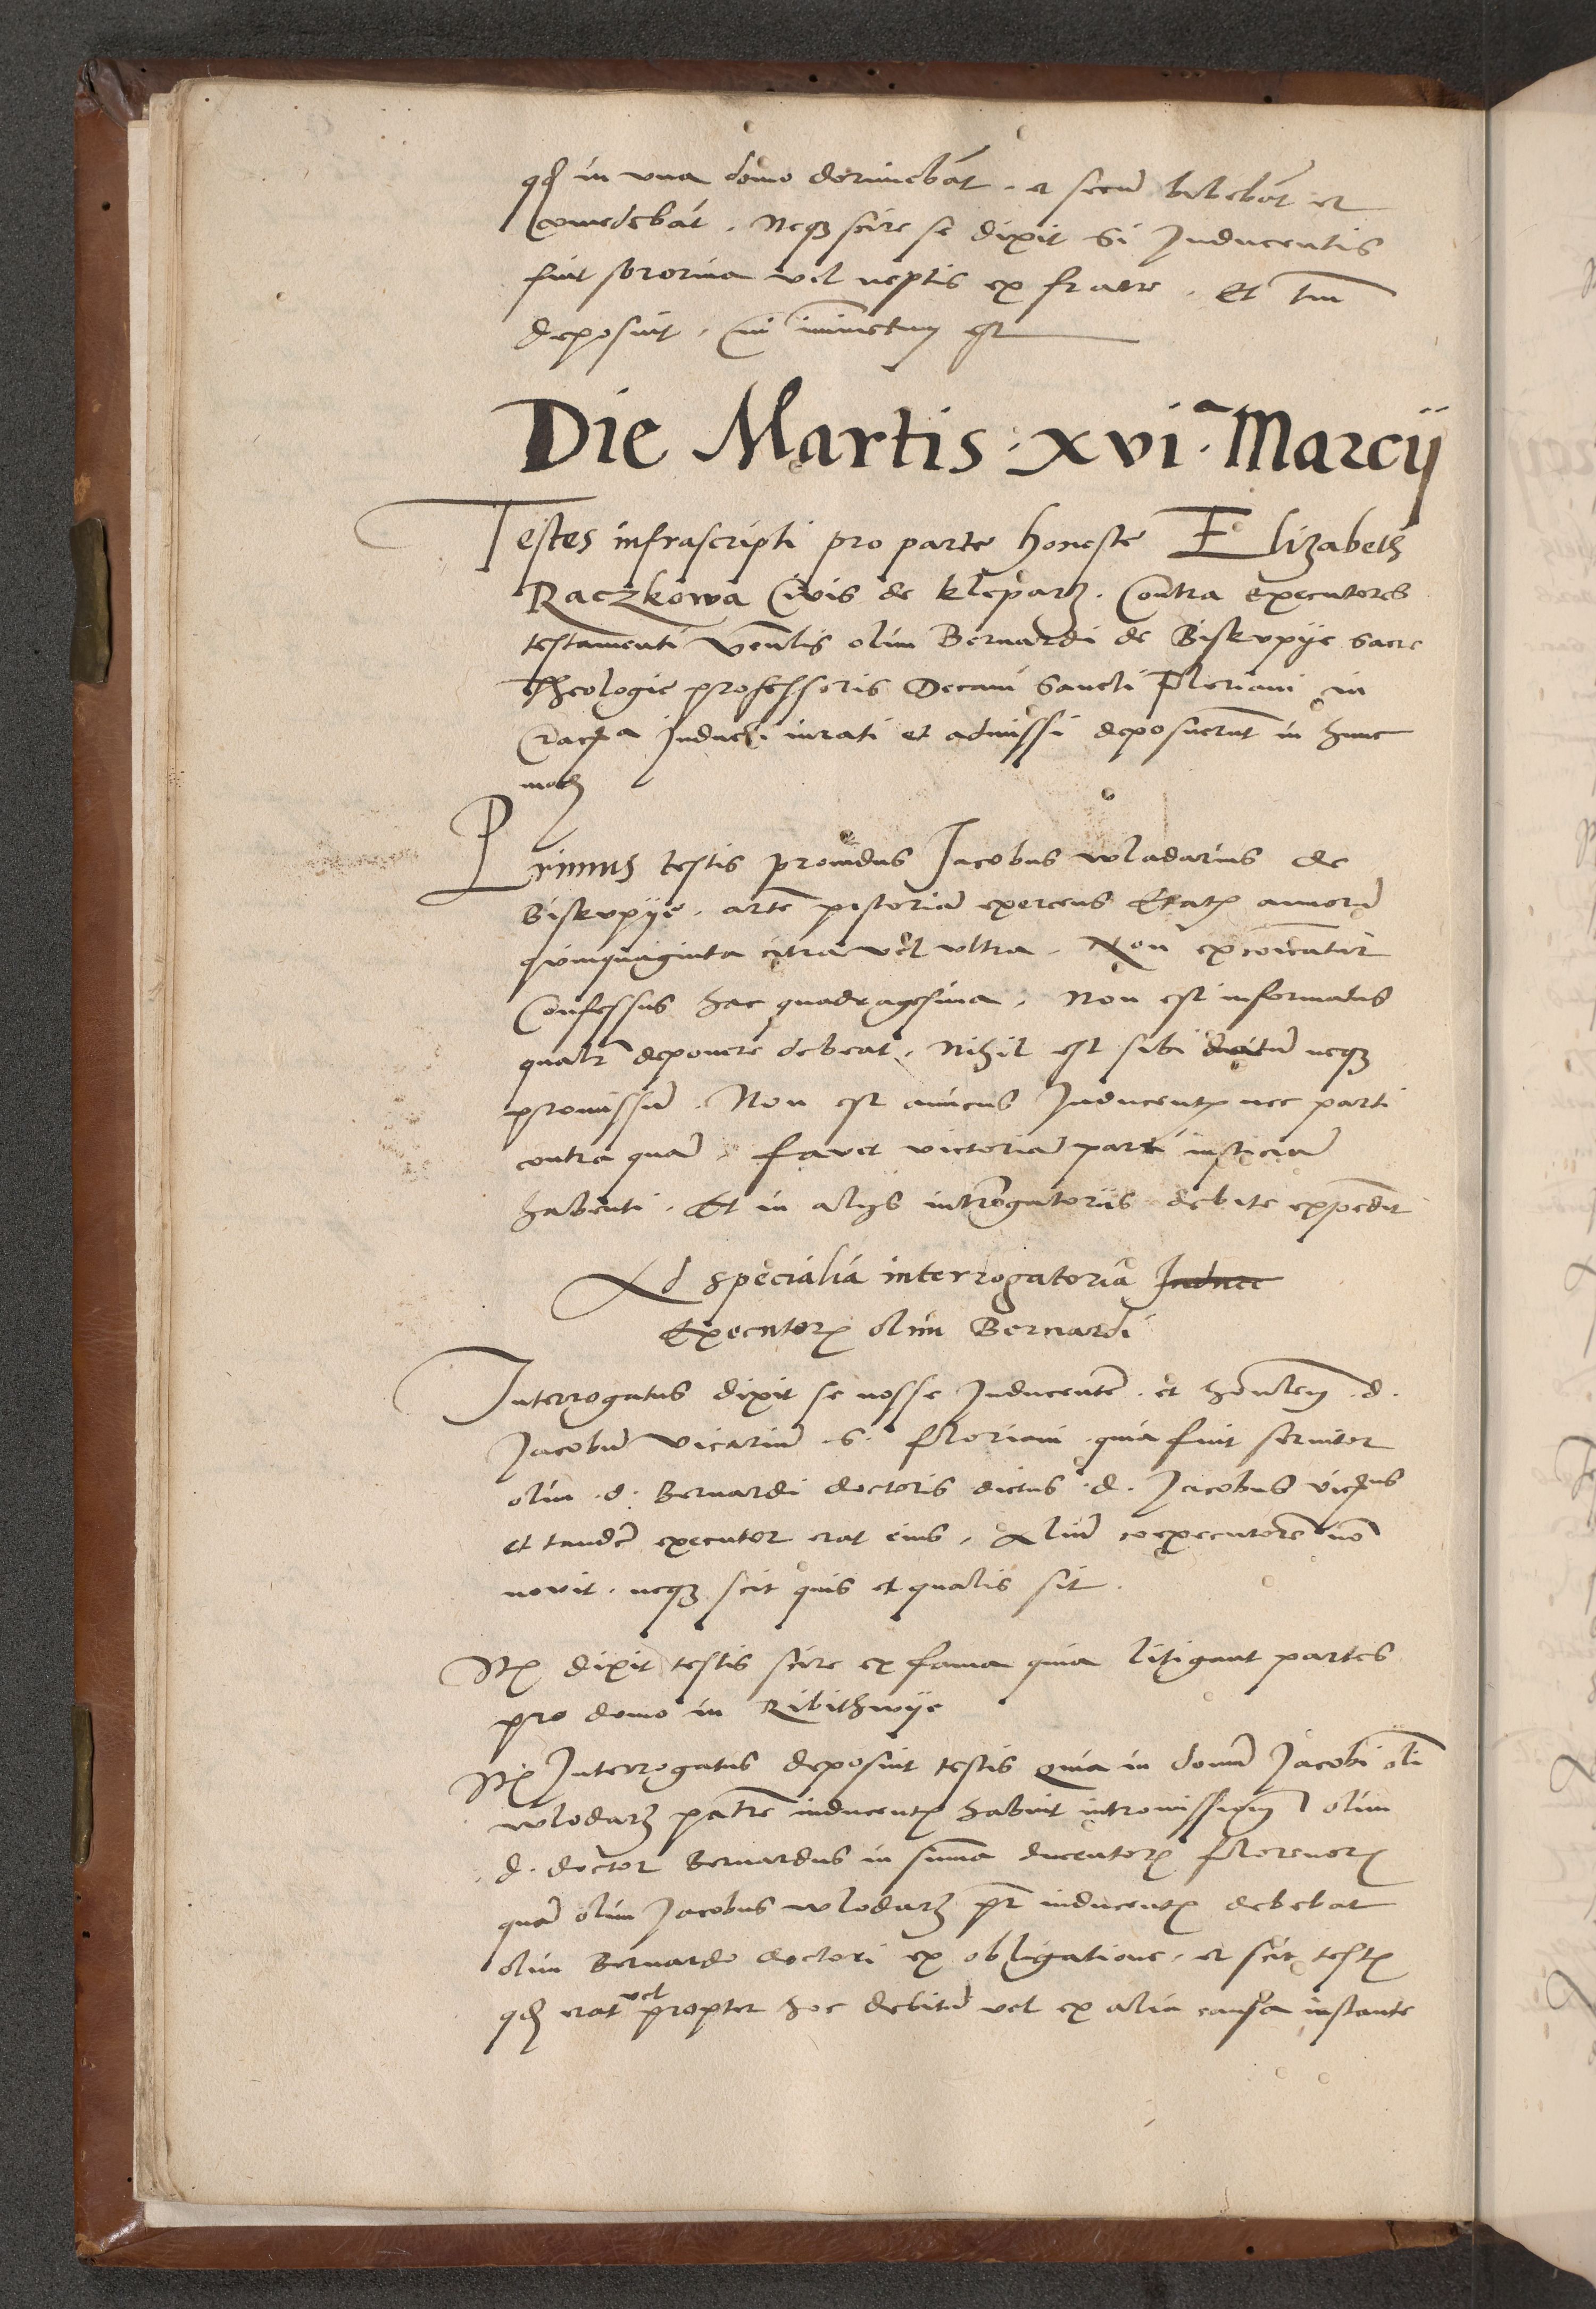 qd in vna domo dormiebāt . et secū bibebāt et
comedebāt . Neqz scire se dixit Si Inducentis
fuit sororina vel neptis ex fratre . Et tm̄
deposuit . Cui iniunctum est
Die Martis . xvi.ª Marcij
Testes infrascripti pro parte honeste Elizabeth
Raczkowa Civis de kleparz . Contra executores
testamenti Venlis olim Bernardi de Biskupije sacre
Theologie professoris Decani Sancti Floriani in
Cracia Inducti iurati et admissi deposuerūt in hunc
modz
Primus testis prouidus Jacobus wladarius de
Biskupije . artē pistoriā exercens Etatis annorū
quinquaginta citra vel vltra . Non excoīcatur
Confessus hac quadragesima . Non est informatus
qualr deponere debeat . Nihil est sibi datū neqz
promissū . Non est amicus Inducentis nec parti
contra quā . favet victoriā parti iusticiā
habenti . Et in alijs introgatorijs debite expedit
Ad specialia interrogatoria Induce
Executorꝝ olim Bernardi
Interrogatus dixit se nosse Inducentē . et honlem . d .
Jacobū vicariū . S . Floriani . quia fuit seruitor
olim . d . Bernardi doctoris dictus . d . Jacobus vicius
et tandē executor erat eius . Aliū coexecutorē nō
novit . neqz scit quis et qualis sit .
Itꝫ dixit testis scire ex fama quia litigant partes
pro domo in Ribithwije
Itꝫ Interrogatus deposuit testis Quia in domū Jacobi oli
wlodarz patre inducentis habuit intromissionem olim
. d . doctor Bernardus in sum̄a ducentorꝝ florenorꝝ
quā olim Jacobus wlodarz pr inducentis debebat
olim Bernardo doctori ex obligatione . et scit testis
qd erat vel propter hoc debitū vel ex alia causa instante